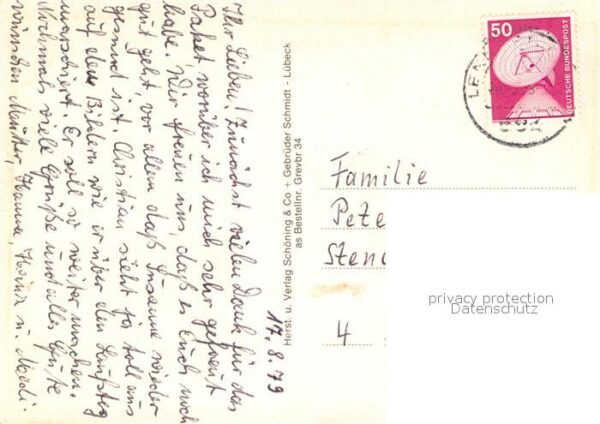 Ihr Lieben! Zunächst vielen Dank für das
Paket, worüber ich mich sehr gefreut
habe. Wir freuen uns daß es Euch noch
gut geht vor allem daß Susanne wieder
gesund ist. Christian sieht ja toll aus
auf den Bildern wie er über den Laufsteg
marschiert. Er soll so weiter machen.
Nochmals viele Grüße und alles Gute
wünschen Hanna, u.
17.8.79
Herst. u. Verlag Schöning & Co + Gebrüder Schmidt - Lübeck
as Bestellnr. Grevbr 34
50
DEUTSCHE BUNDESPOST
Familie
Pete
Sten
4
privacy protection
Datenschutz